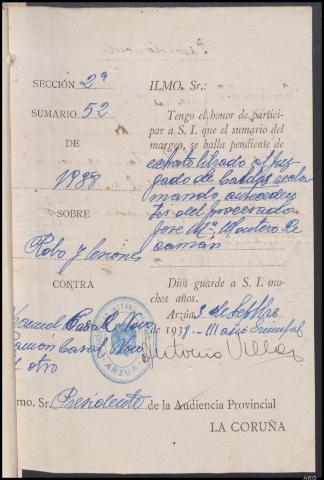 SECCIÓN 2ª
SUMARIO 52
DE
1938
SOBRE
Robo y lesiones
CONTRA
Manuel Casal Novo
Ramon Casal Novo
y otro
ILMO. Sr.:
Tengo el honor de partici-
par a S. I. que el sumario del
margen, se halla pendiente de
exhorto librado al Juz
gado de Caldas recla
mando antecedentes
del procesado
Jose Mª Montero Re
caman
Dios guarde a S. I. mu-
chos años.
Arzúa 3 de Septbre
de 1938.-II año triunfal
Antonio Villar
ARZUA
lmo. Sr. Presidente de la Audiencia Provincial
LA CORUÑA